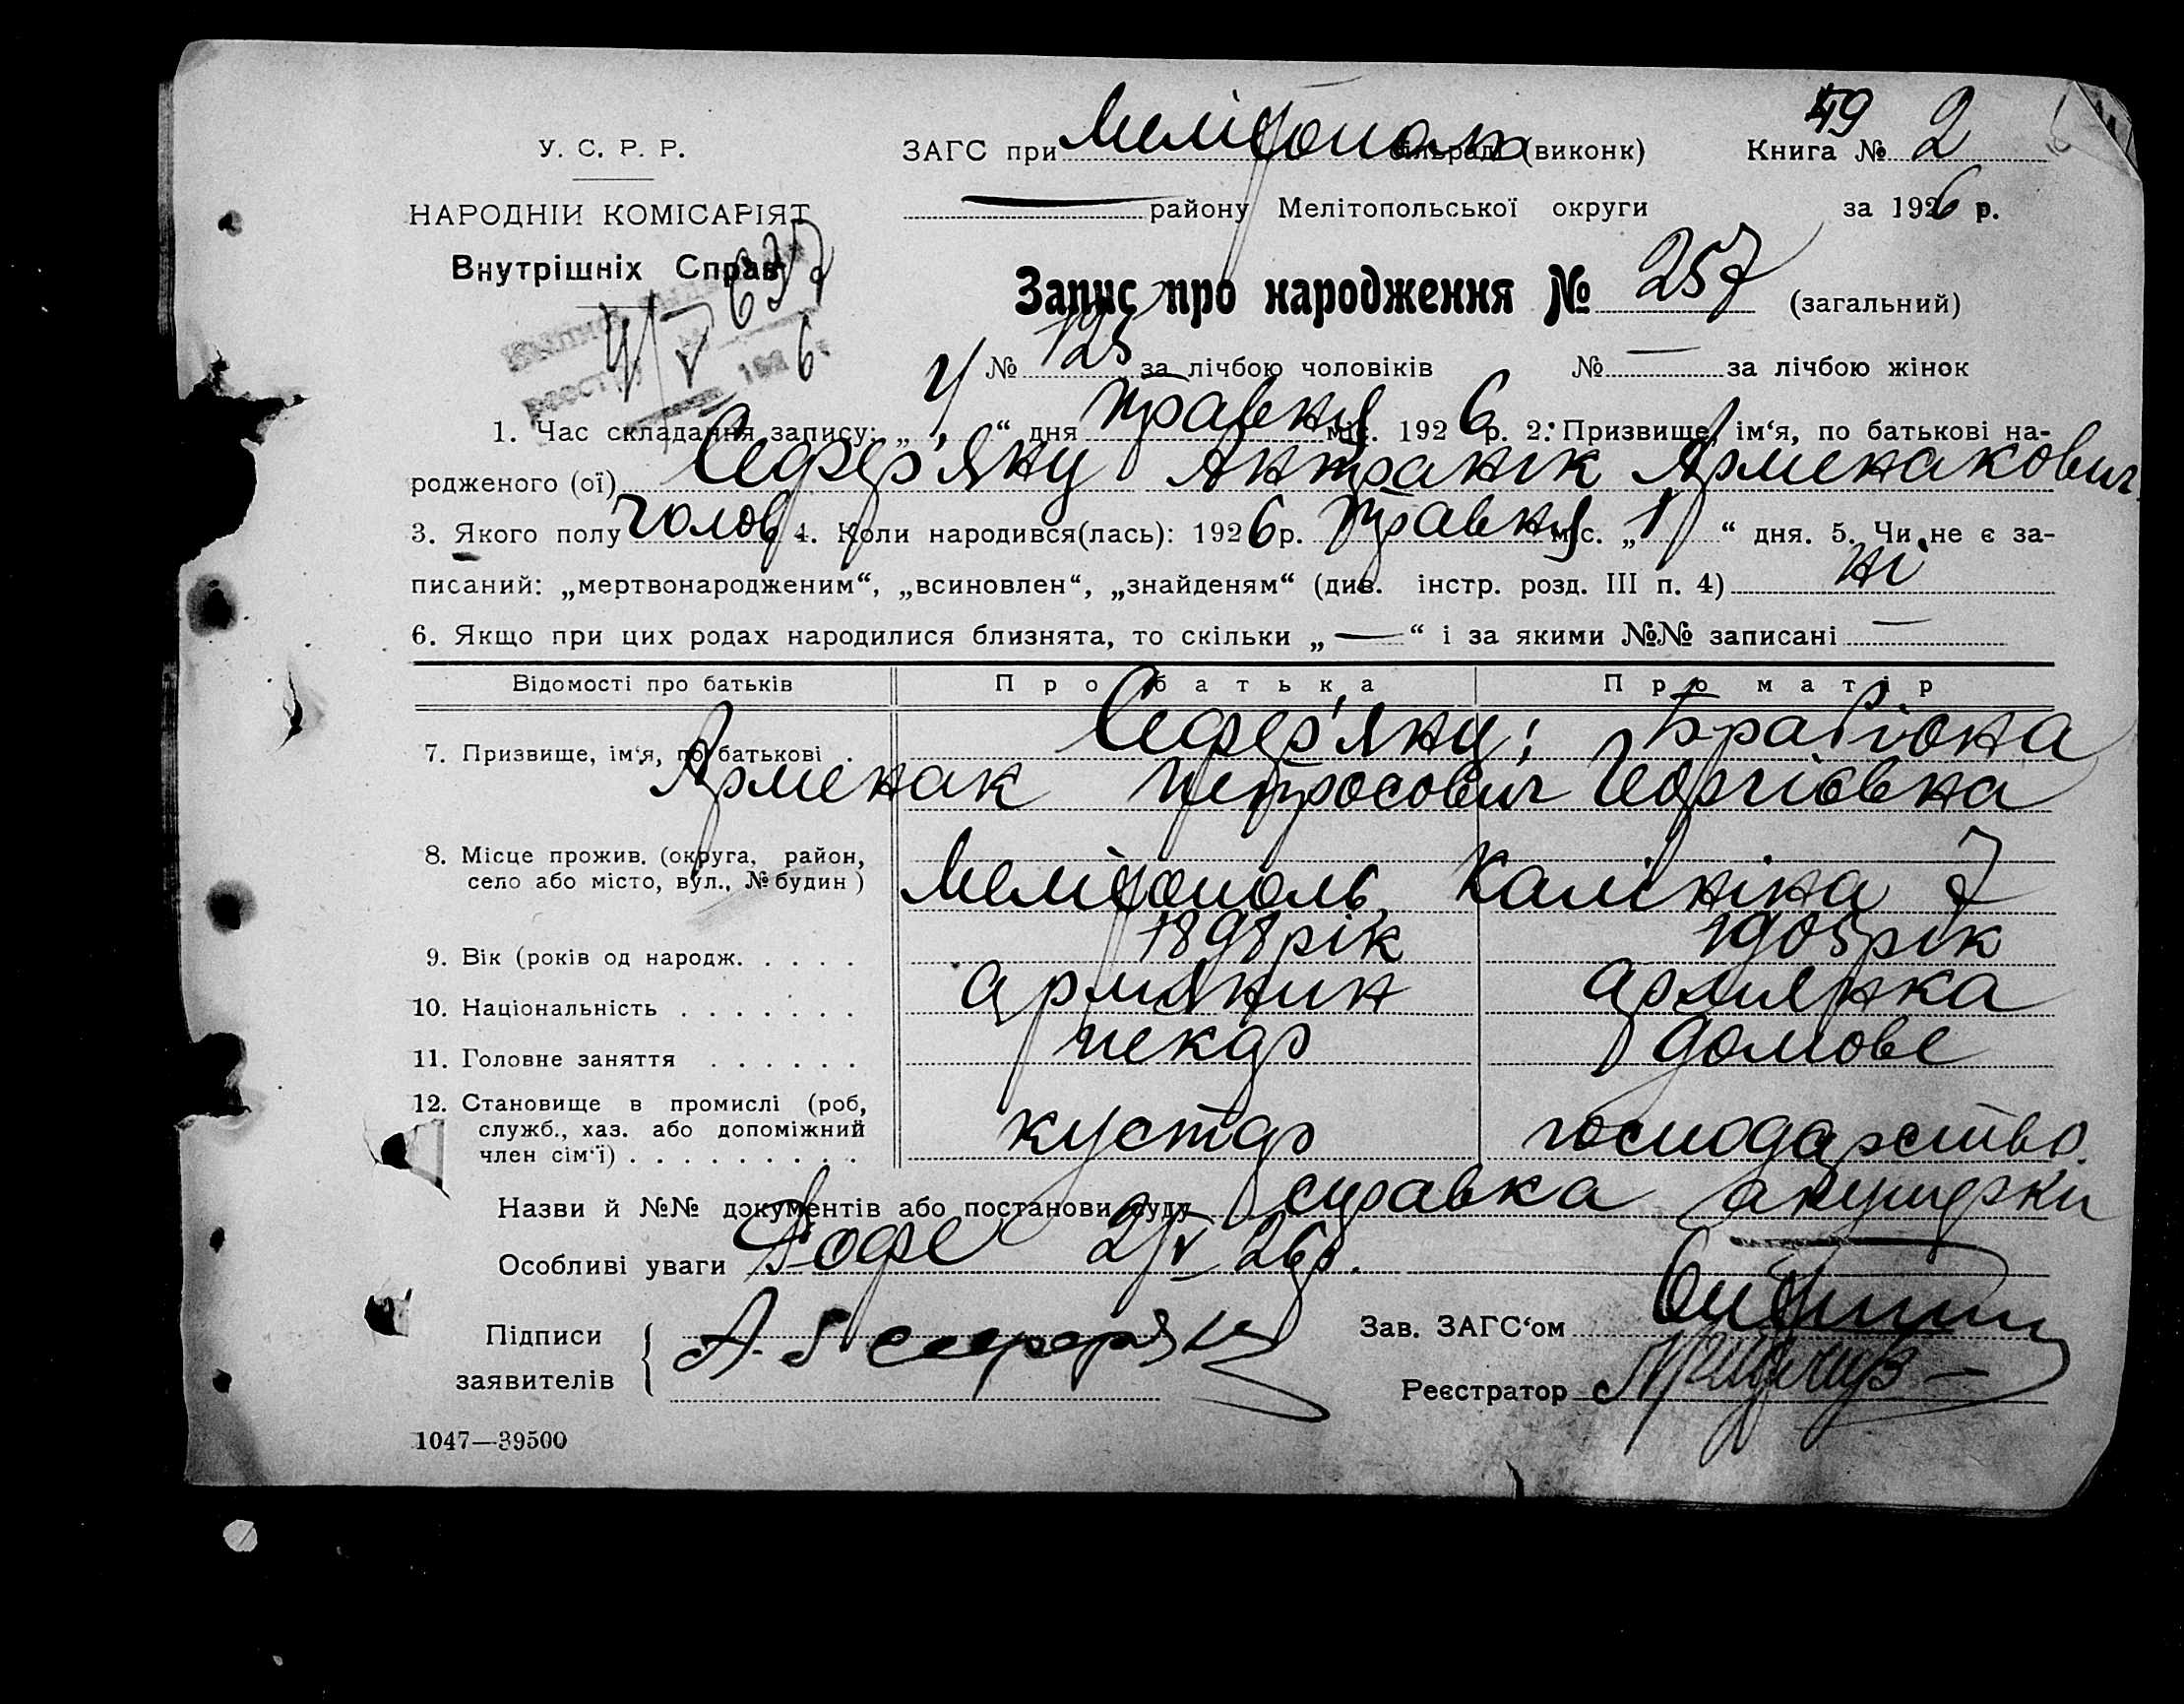 49
У. С. Р. Р. ЗАГС при Мелітополь сільраді (виконк) Книга № 2
НАРОДНІЙ КОМІСАРІЯТ района Мелітопольської округи за 1926 р.
Внутрішніх Справ 637
Запис про народження № 257 (загальний)
Выпись
реестр 4/V 1926 г.
№ 125 за лічбою чоловіків № — за лічбою жінок
1. Час складання запису: „4“ дня травня міс. 1926 р. 2. Призвище, ім‘я, по батькові на-
родженого (ої) Сефер'янц Антранік Арменакович
3. Якого полу голов 4. Коли народився(лась): 1926 р. травня міс. „1“ дня. 5. Чи не є за-
писаний: „мертвонародженим“, „всиновлен“, „знайденям“ (див. інстр. розд. III п. 4) ні
6. Якщо при цих родах народилися близнята, то скільки „—“ і за якими №№ записані —
Відомості про батьків Про батька Про матір
7. Призвище, ім‘я, по батькові . Сефер'янц;
Арменак Петросович Георгіёвна
8. Місце прожив. (округа, район,
село або місто, вул., № будин) Мелітополь, Калініна 7
9. Вік (років од народж. . . . . 1898 рік 1905 рік
10. Національність . . . . . . . армянин армянка
11. Головне заняття . . . . . . пекар домове
12. Становище в промислі (роб,
служб., хаз. або допоміжний кустар господарство.
член сім‘ї) . . . . . . . . .
Назви й №№ документів або постанови суду справка акушерки
Особливі уваги Рофе 2/V 26 р.
Підписи Зав. ЗАГС‘ом
заявителів Реєстратор
1047—39500